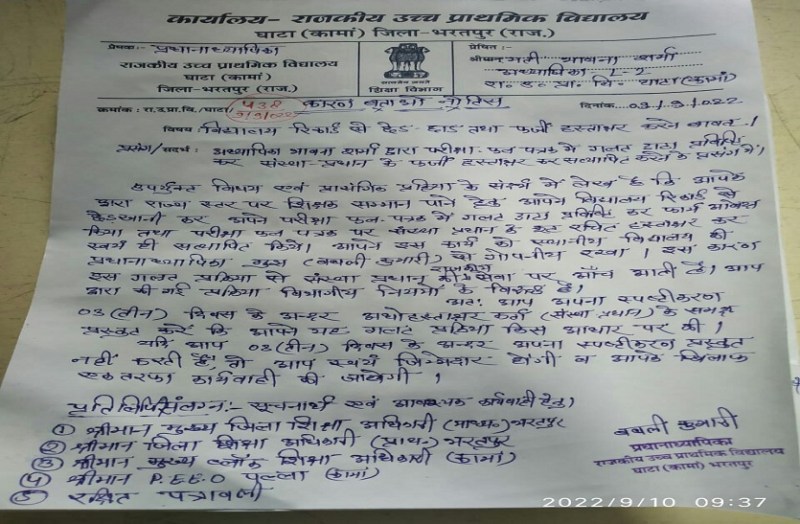 कार्यालय- राजकीय उच्च प्राथमिक विद्यालय
घाटा (कामां) जिला-भरतपुर (राज.)
प्रेषक:- प्रधानाध्यापिका
राजकीय उच्च प्राथमिक विद्यालय
घाटा (कामां)
जिला-भरतपुर (राज.)
शिक्षा विभाग
प्रेषित :-
श्रीमान भावना शर्मा
अध्यापिका L-2
रा. उ. प्रा. वि. घाटा (कामां)
क्रमांक: रा.उ.प्रा.वि./घाटा/ कारण बताओ नोटिस दिनांक
विषय विद्यालय रिकार्ड से छेड़-छाड़ तथा फर्जी हस्ताक्षर करने बाबत।
प्रसंग/संदर्भ: अध्यापिका भावना शर्मा द्वारा परीक्षा फल पत्रक में गलत डाटा प्रविष्टि
कर संस्था-प्रधान के फर्जी हस्ताक्षर कर सत्यापित करने के प्रसंग में।
उपर्युक्त विषय एवं प्रासंगिक के संदर्भ में लेख है कि आपके
द्वारा राज्य स्तर पर शिक्षक सम्मान पाने हेतु आपने विद्यालय रिकार्ड से
छेड़खानी कर अपने परीक्षा फल-पत्रक में गलत डाटा प्रविष्टि कर फार्म
किया तथा परीक्षा फल पत्रक पर संस्था प्रधान के हस्ताक्षर कर
स्वयं ही सत्यापित किये। आपने इस कार्य को स्थानीय विद्यालय की
प्रधानाध्यापिका मुख्य (बबली कुमारी) से गोपनीय रखा। इस कारण
इस गलत प्रक्रिया से संस्था प्रधान की राजकीय सेवा पर आँच आती है। आप
द्वारा की गई प्रक्रिया विभागीय नियमों के विरुद्ध है।
अतः आप अपना स्पष्टीकरण
03 (तीन) दिवस के अन्दर अधोहस्ताक्षर कर्ता (संस्था प्रधान) के समक्ष
प्रस्तुत करें कि आपने यह गलत प्रक्रिया किस आधार पर की।
यदि आप 03 (तीन) दिवस के अन्दर अपना स्पष्टीकरण प्रस्तुत
नहीं करती हैं, तो आप स्वयं जिम्मेदार होंगी व आपके खिलाफ
एकतरफा कार्यवाही की जावेगी।
प्रतिलिपि संलग्न:- सूचनार्थ एवं आवश्यक कार्यवाही हेतु।
① श्रीमान मुख्य जिला शिक्षा अधिकारी (माध्य.) भरतपुर
② श्रीमान जिला शिक्षा अधिकारी (प्रा.) भरतपुर
③ श्रीमान मुख्य ब्लॉक शिक्षा अधिकारी (कामां)
④ श्रीमान P.E.E.O पल्ला (कामां)
⑤ रक्षित पत्रावली
बबली कुमारी
प्रधानाध्यापिका
राजकीय उच्च प्राथमिक विद्यालय
घाटा (कामां) भरतपुर
2022/9/10 09:37